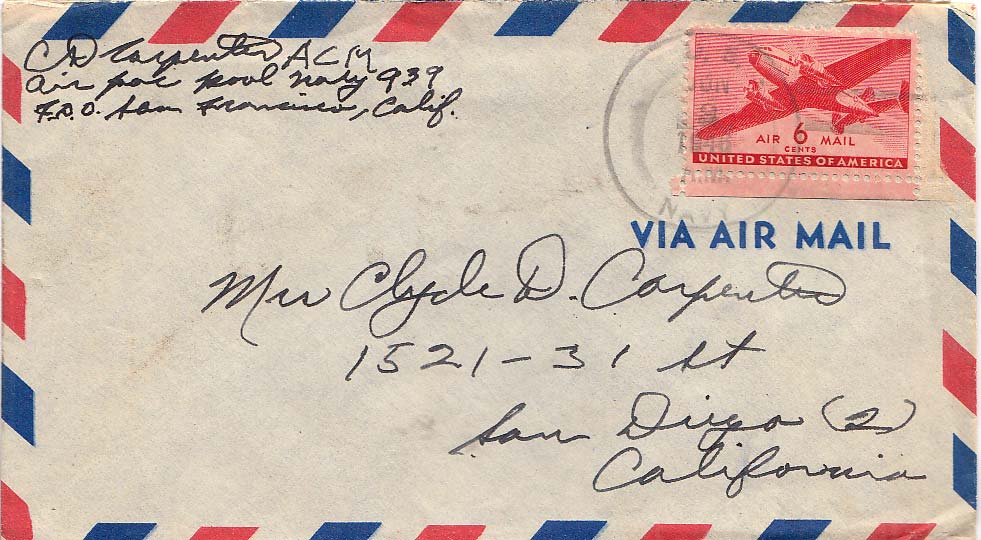 C D Carpenter ACM
Air pac pool Navy 939
F.P.O. San Francisco, Calif.
U. S.
JUN
1946
NAVY
AIR 6 MAIL
CENTS
UNITED STATES OF AMERICA
VIA AIR MAIL
Mrs Clyde D. Carpenter
1521-31 St
San Diego (2)
California